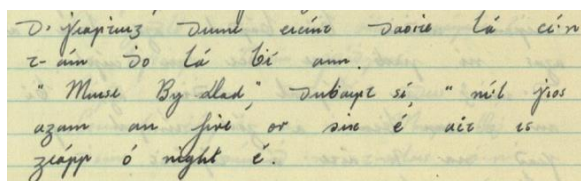 D'fiafruig duine eicínt daoite lá cé'n
t-ám do lá bí ann.
"Muise By dad", dubairt sí, "níl fios
agam an five or six é ait is
gearr ó night é.